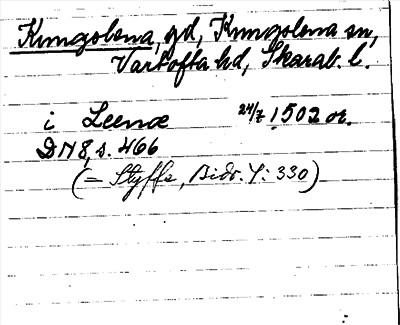 Kungslena, gd, Kungslena sn,
Vartofta hd, Skarab. l.
i Leenæ 24/7 1502 or.
DN 8, s. 466
(= Styffe, Bidr. 4: 330)